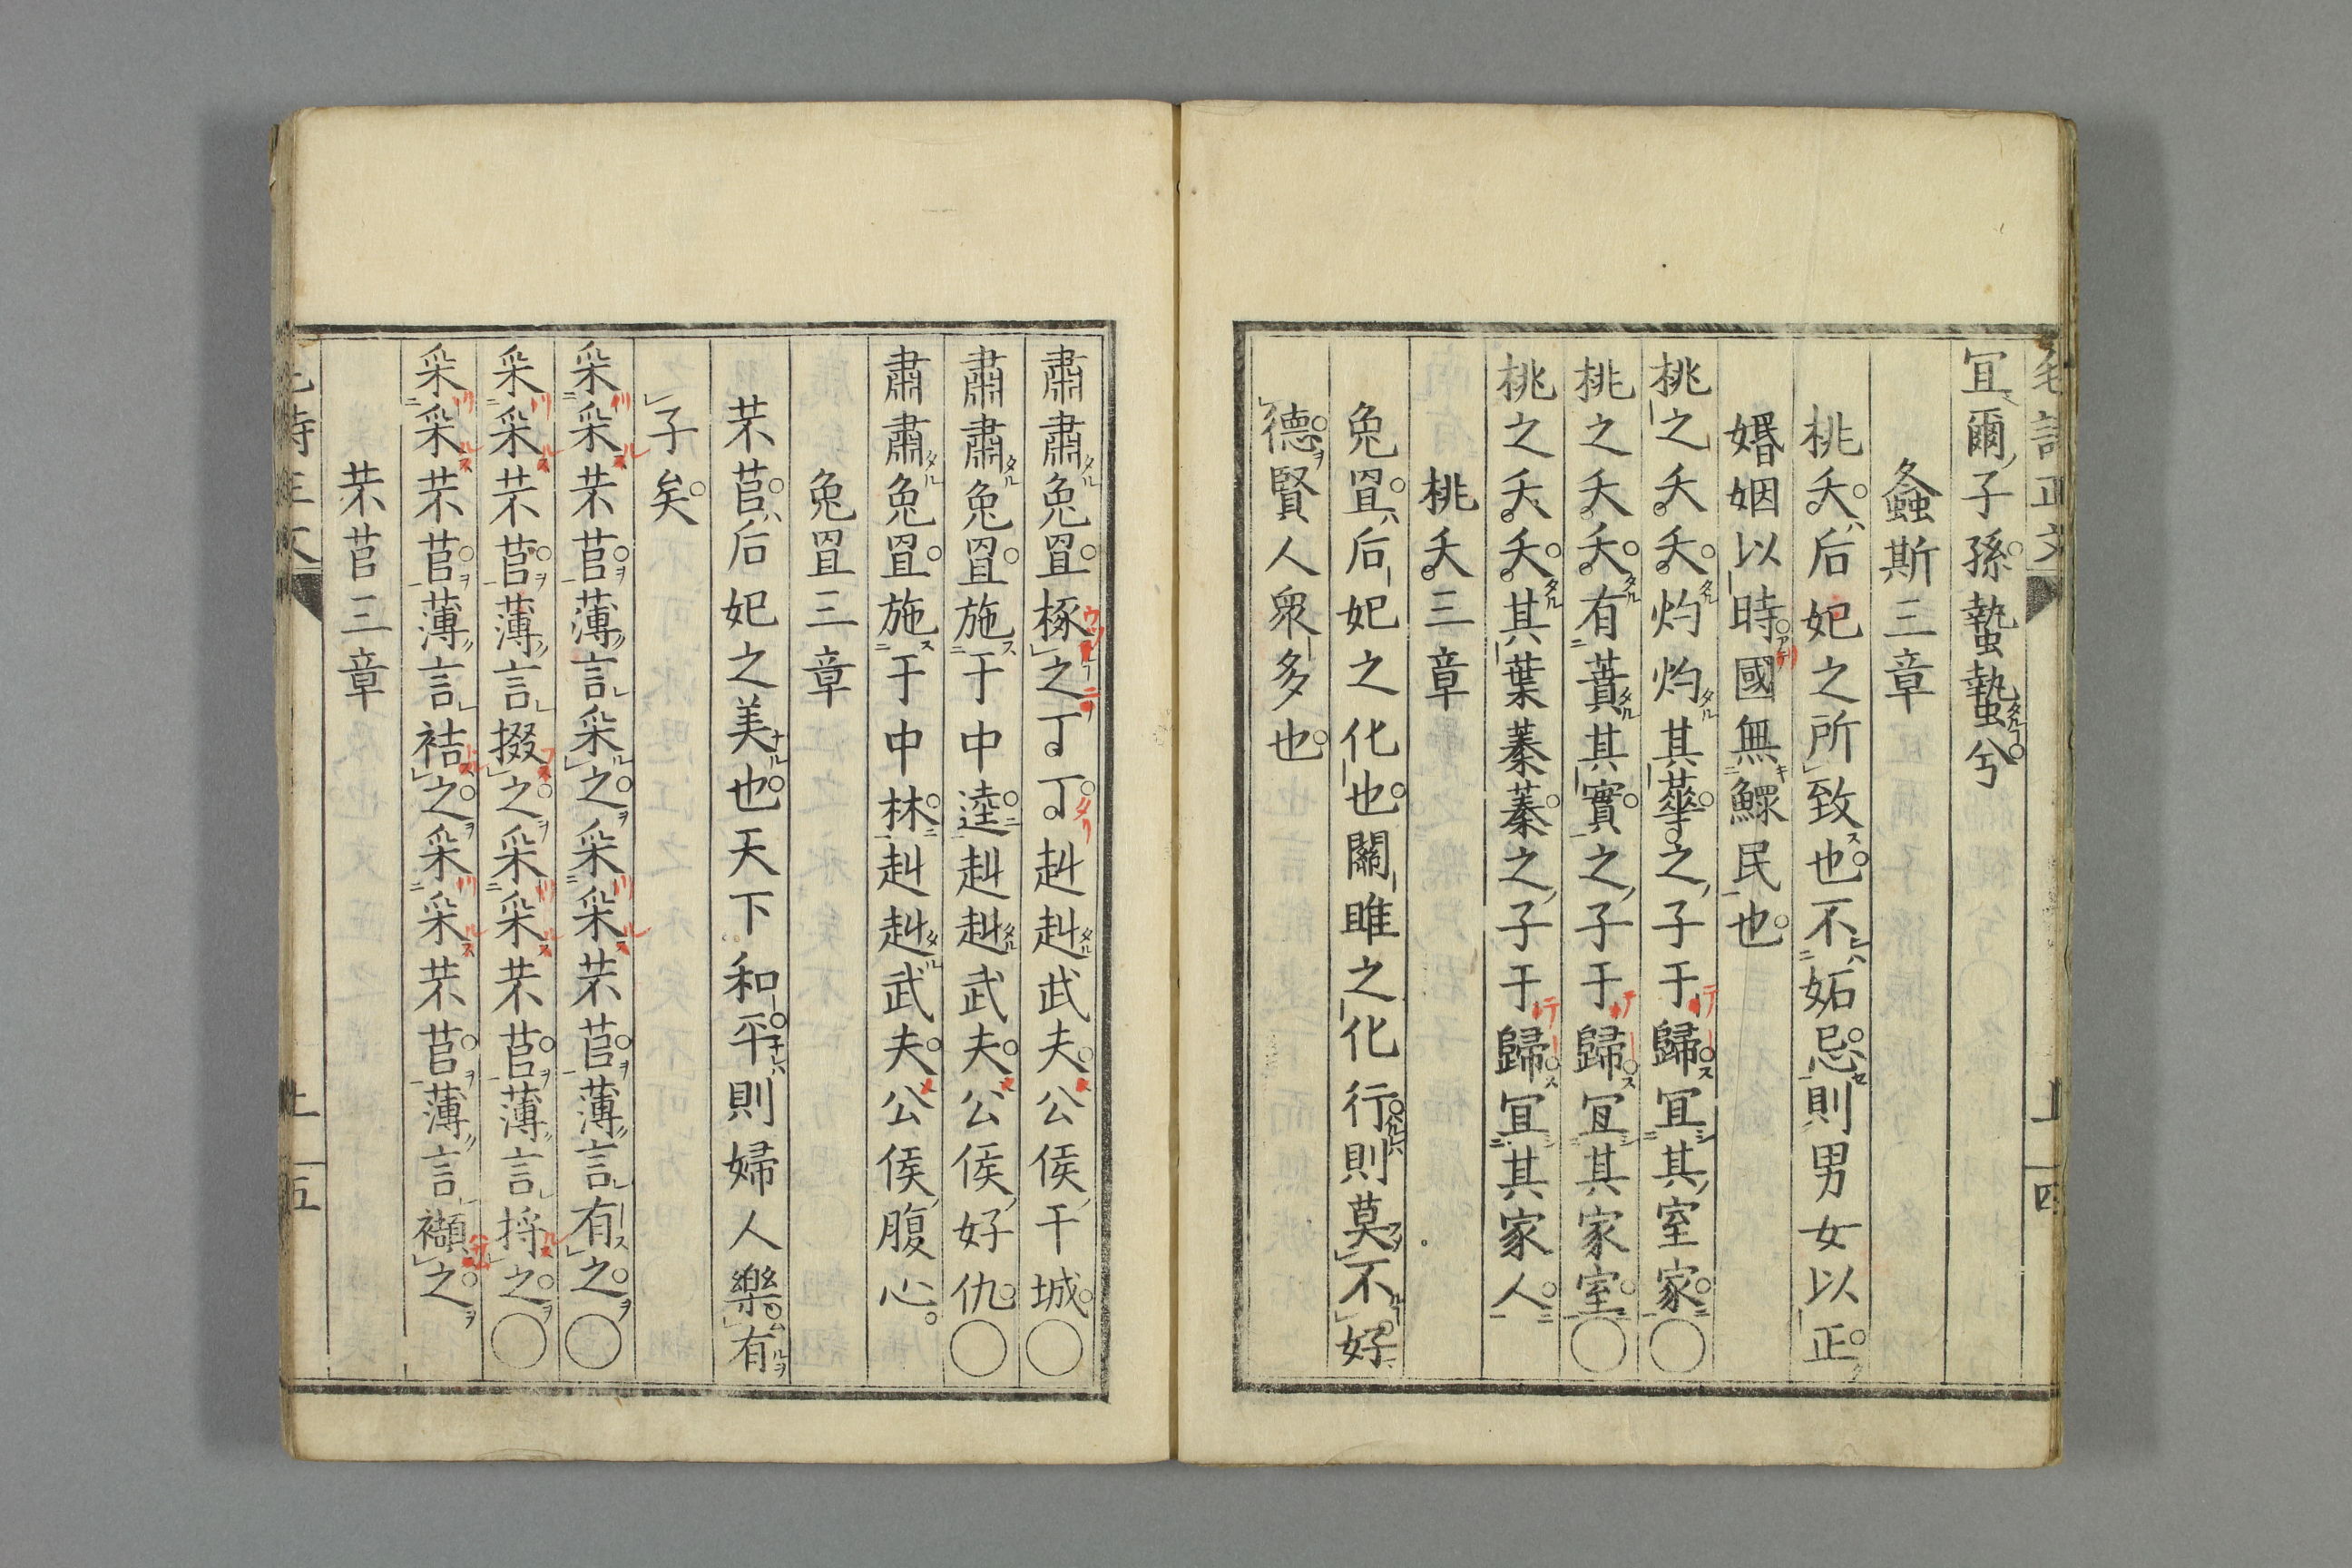 毛詩正文
上
四
宜爾子孫蟄蟄兮
螽斯三章
桃夭后妃之所致也不妬忌則男女以正
婚姻以時國無鰥民也
桃之夭夭灼灼其華之子于歸宜其室家○
桃之夭夭有蕡其實之子于歸宜其家室○
桃之夭夭其葉蓁蓁之子于歸宜其家人
桃夭三章
兔罝后妃之化也關雎之化行則莫不好
德賢人衆多也
肅肅兔罝椓之丁丁赳赳武夫公侯干城○
肅肅兔罝施于中逵赳赳武夫公侯好仇○
肅肅兔罝施于中林赳赳武夫公侯腹心
兔罝三章
芣苢后妃之美也天下和平則婦人樂有
子矣
采采芣苢薄言采之采采芣苢薄言有之○
采采芣苢薄言掇之采采芣苢薄言捋之○
采采芣苢薄言袺之采采芣苢薄言襭之
芣苢三章
毛詩正文
上
五